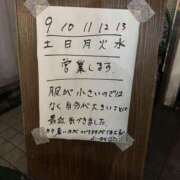 9 10 11 12 13
土 日 月 火 水
営業します
服が小さいのでは
なく自分が大きいことに
最近気づきました